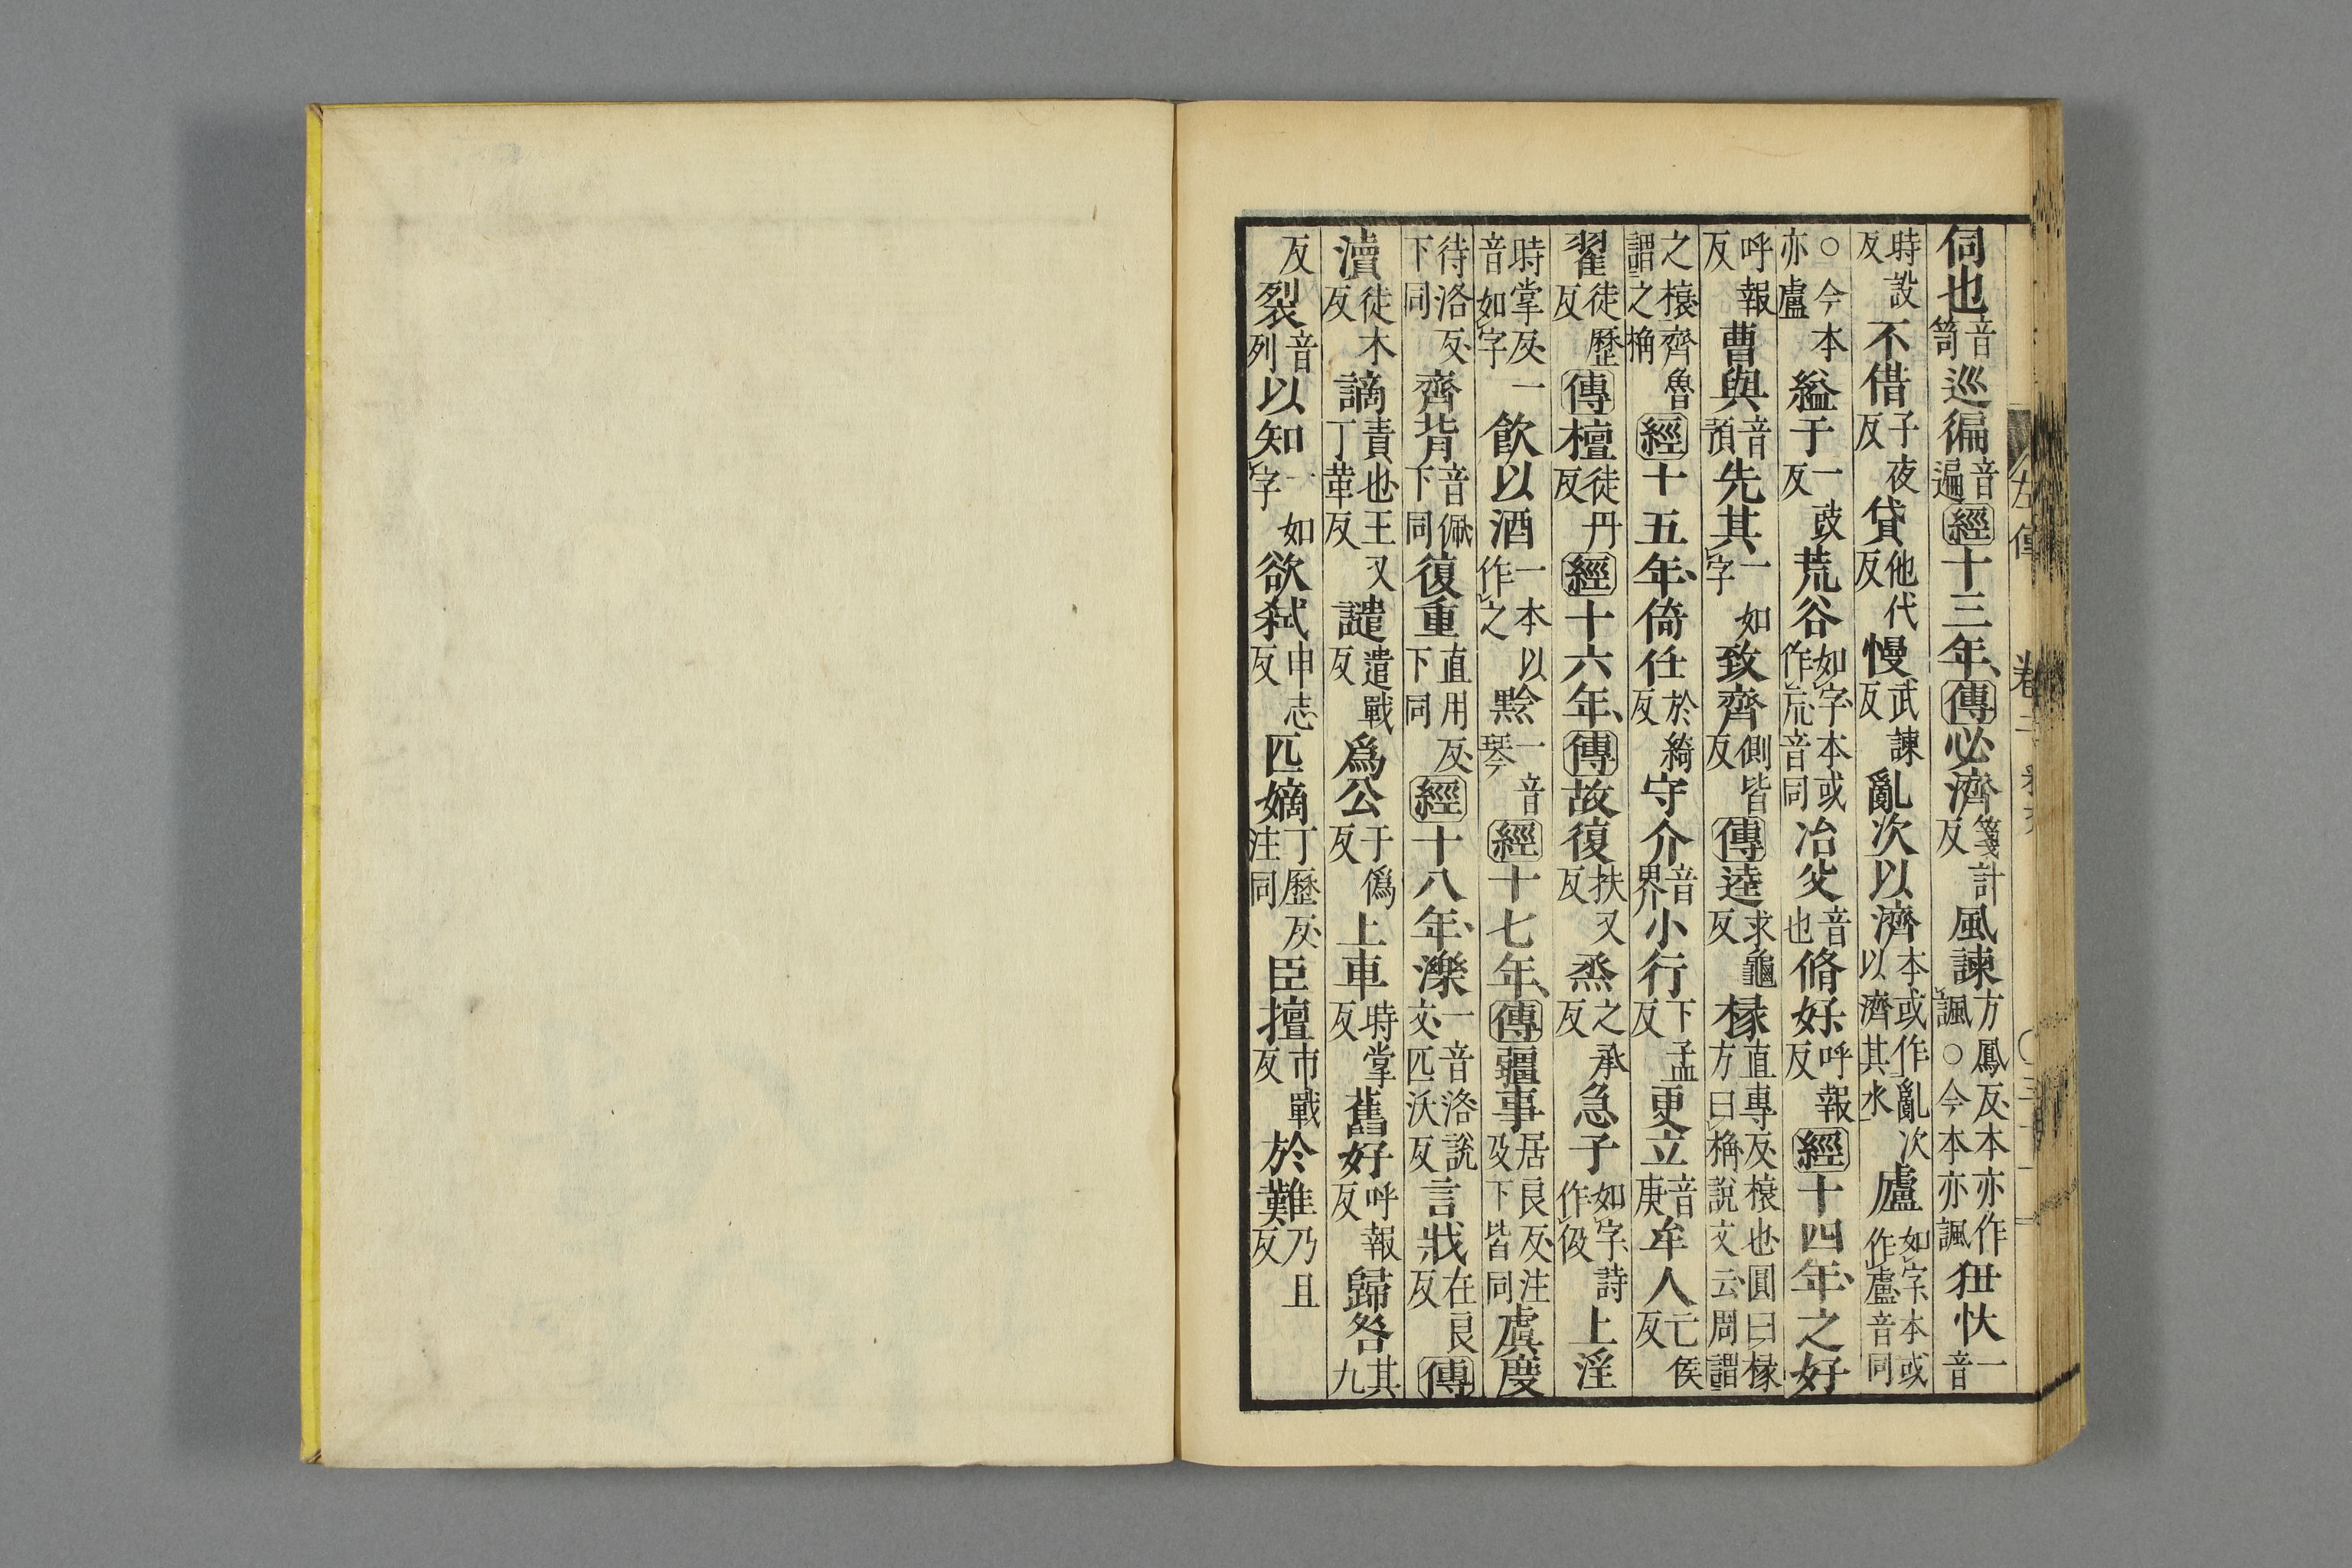 伺也音笥巡徧音遍經十三年、傳必濟箋計反風諫方鳳反本亦作諷○今本亦諷狃忕一音
時設反不借子夜反貸他代反慢武諫反亂次以濟本或作亂次以濟其水廬如字本或作盧音同
○今本亦盧縊于一豉反荒谷如字本或作巟音同冶父音也脩好呼報反經十四年、之好
呼報反曹與音預先其一如字致齊側皆反傳逵求龜反椽直專反榱也圓曰椽方曰桷說文云周謂
之榱齊魯謂之桷經十五年、倚任於綺反守介音界小行下孟反更立音庚牟人亡侯反
翟徒歷反傳檀徒丹反經十六年、傳故復扶又反烝之承反急子如字詩作伋上淫
時掌反一音如字飲以酒一本以作之黔一音琴經十七年、傳疆事居良反注及下皆同虞度
待洛反下同齊背音佩下同復重直用反下同經十八年、濼一音洛說文匹沃反言戕在良反傳
瀆徒木反謫責也王又丁革反譴遣戰反爲公于僞反上車時掌反舊好呼報反歸咎其九
反裂音列以知一如字欲弑申志反匹嫡丁歷反注同臣擅市戰反於難乃且反